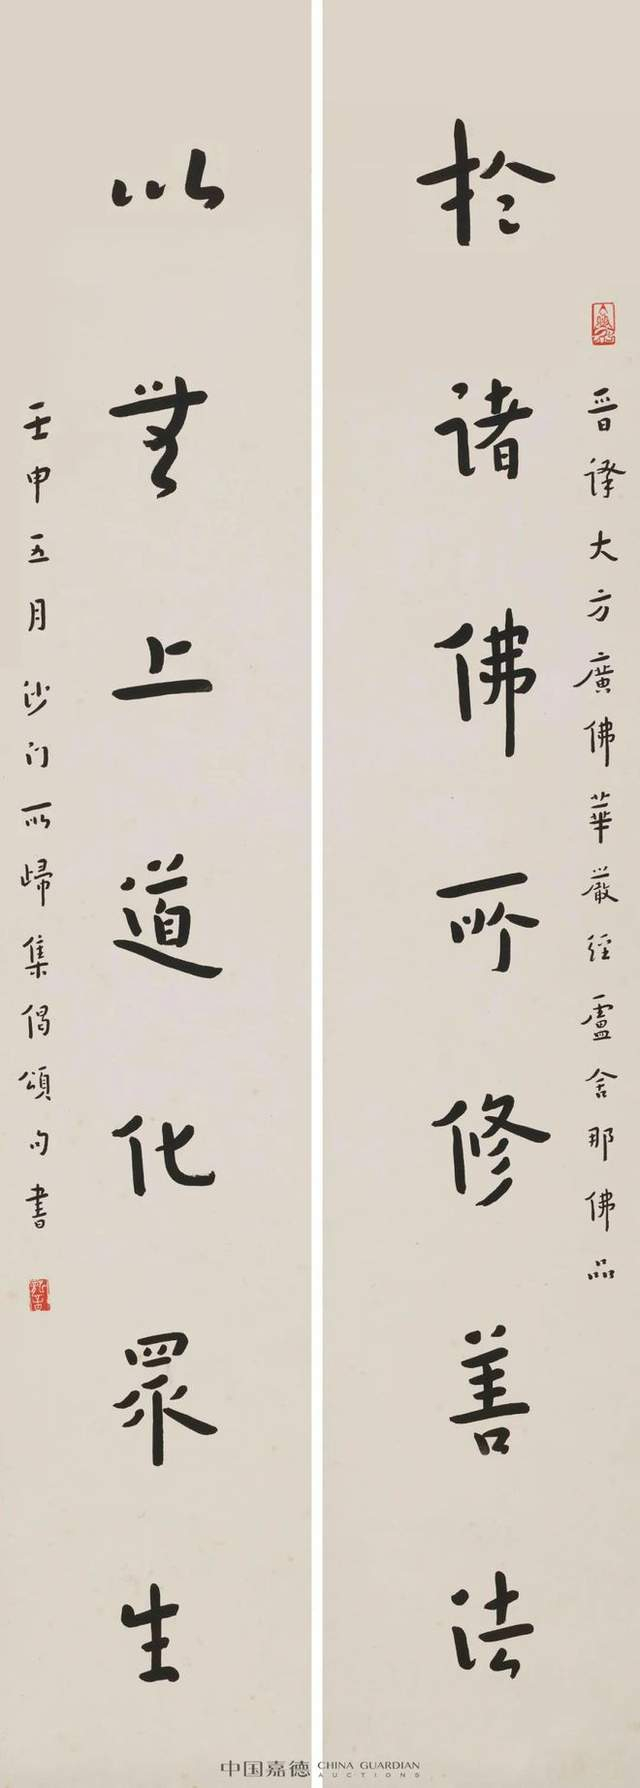 於諸佛所修善法
晉譯大方廣佛華嚴經盧舍那佛品
以無上道化眾生
壬申五月沙门所歸集偈頌句書
中国嘉德 CHINA GUARDIAN
AUCTIONS